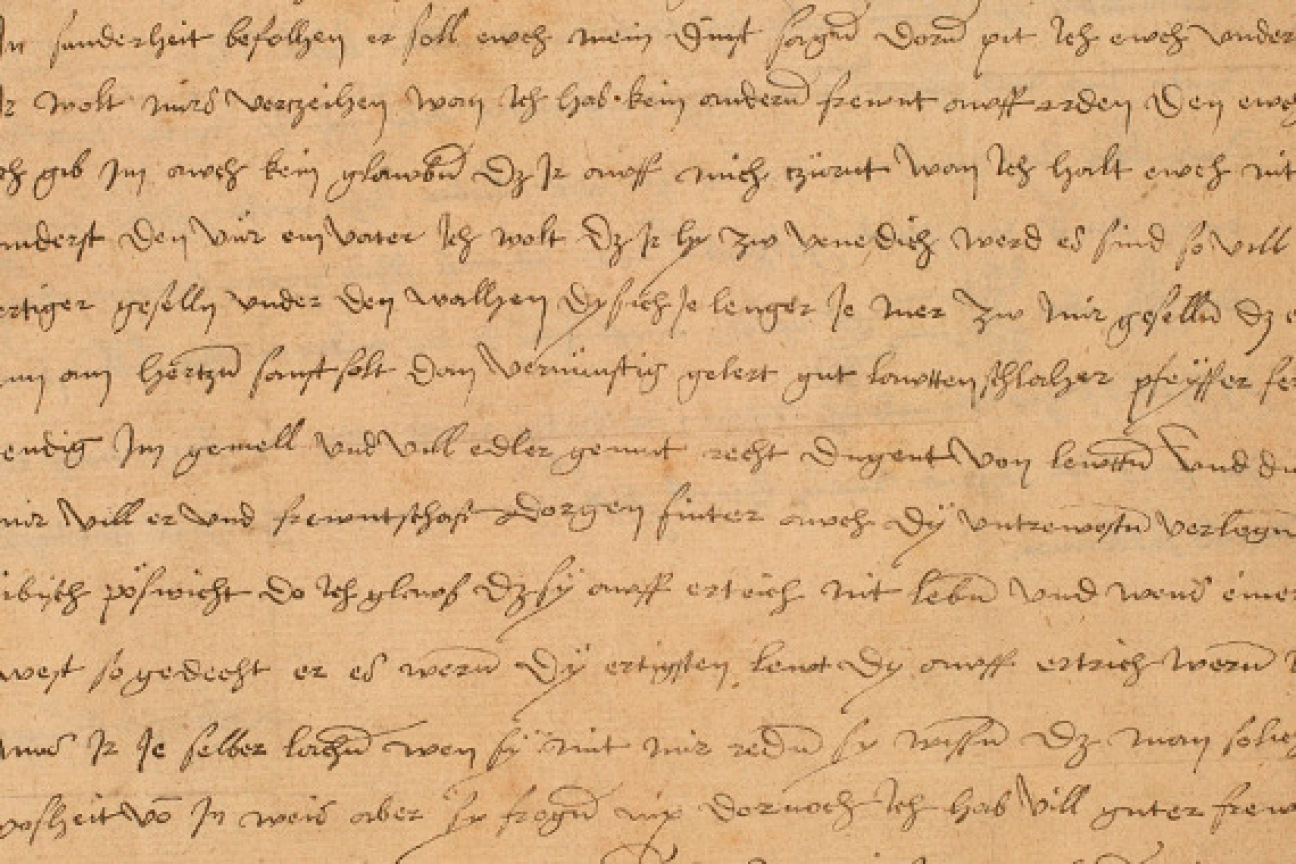 In sunderheit befolhen er soll ewch mein dinst sagn̄ dorū pit Ich ewch under
Ir wolt mirs verczeihen wan Ich hab kein andern̄ frewnt awff erden den ewch
Ich gib im awch kein glawbn̄ dz Ir awff mich czürnt wan Ich halt ewch nit
anderst den vür ein vater Ich wolt dz Ir hy zw venedich werd es sind so vill
ertiger geselln under den walhen dy sich Je lenger Je mer zw mir geselln̄ dz e
am hertzn̄ sanft solt dan vernünftig gelert gut lawttenschlaher pfeyffer fer
endig Im gemell und vill edler gemut recht dugent von lewttn̄ und du
mir vill er und frewntschaft dorgen finter awch dy untrewestn̄ verlogn̄
dibisch pöswicht do Ich glawb dz sy awff ertrich nit lebtn̄ und wens einer
west so gedecht er es wern̄ dy ertigsten lewt dy awff ertrich wern̄
mus Ir Je selber lachn̄ wen sy mit mir redn̄ sy wissn̄ dz man solich
posheit vō In weis aber sy frogn̄ nix dornoch Ich hab vill guter frew